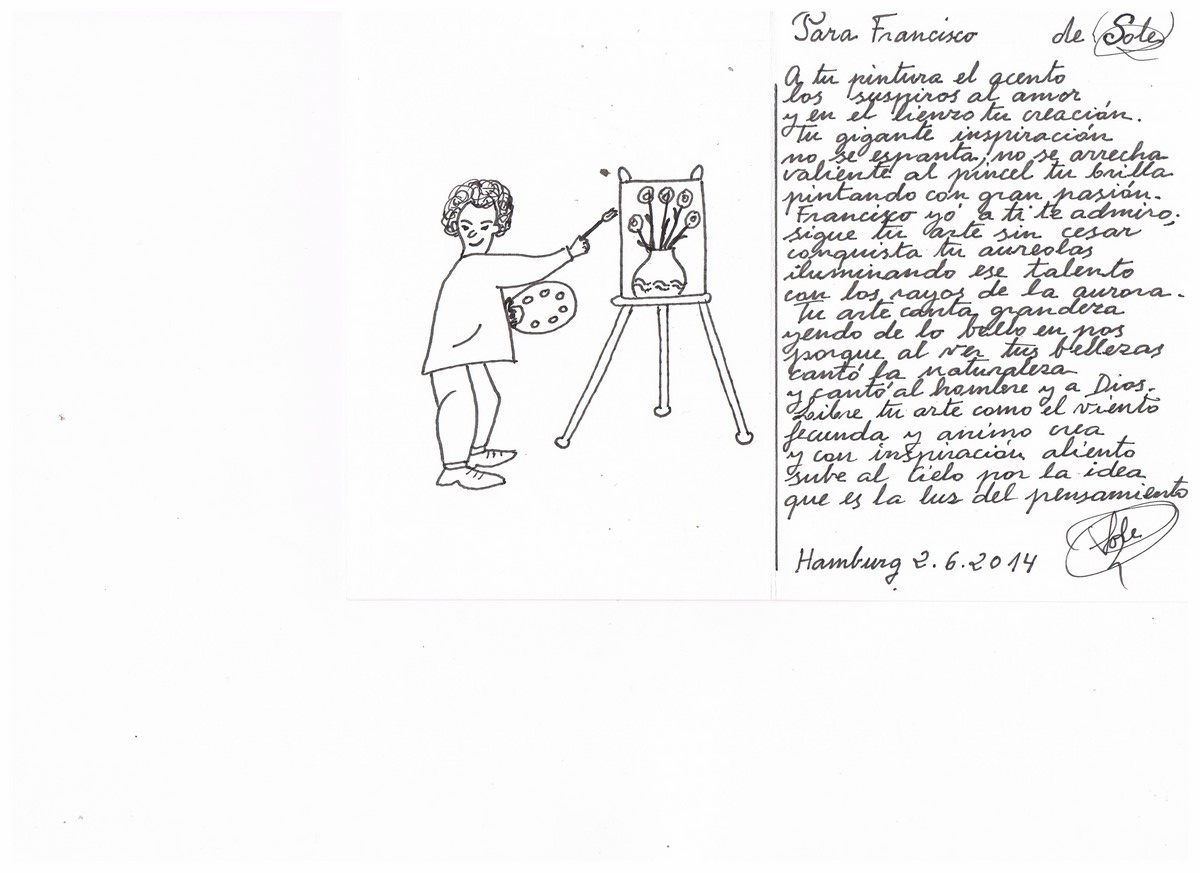 Para Francisco de Sole
A tu pintura el acento
los suspiros al amor
y en el lienzo tu creación.
Tu gigante inspiración
no se espanta, no se arrecha
valiente al pincel tu brilla
pintando con gran pasión.
Francisco yo a ti te admiro,
sigue tu arte sin cesar
conquista tu aureolas
iluminando ese talento
con los rayos de la aurora.
Tu arte canta grandeza
yendo de lo bello en pos
porque al ver tus bellezas
cantó la naturaleza
y cantó al hombre y a Dios.
Libre tu arte como el viento
fecunda y animo crea
y con inspiración aliento
sube al cielo por la idea
que es la luz del pensamiento
Sole
Hamburg 2.6.2014